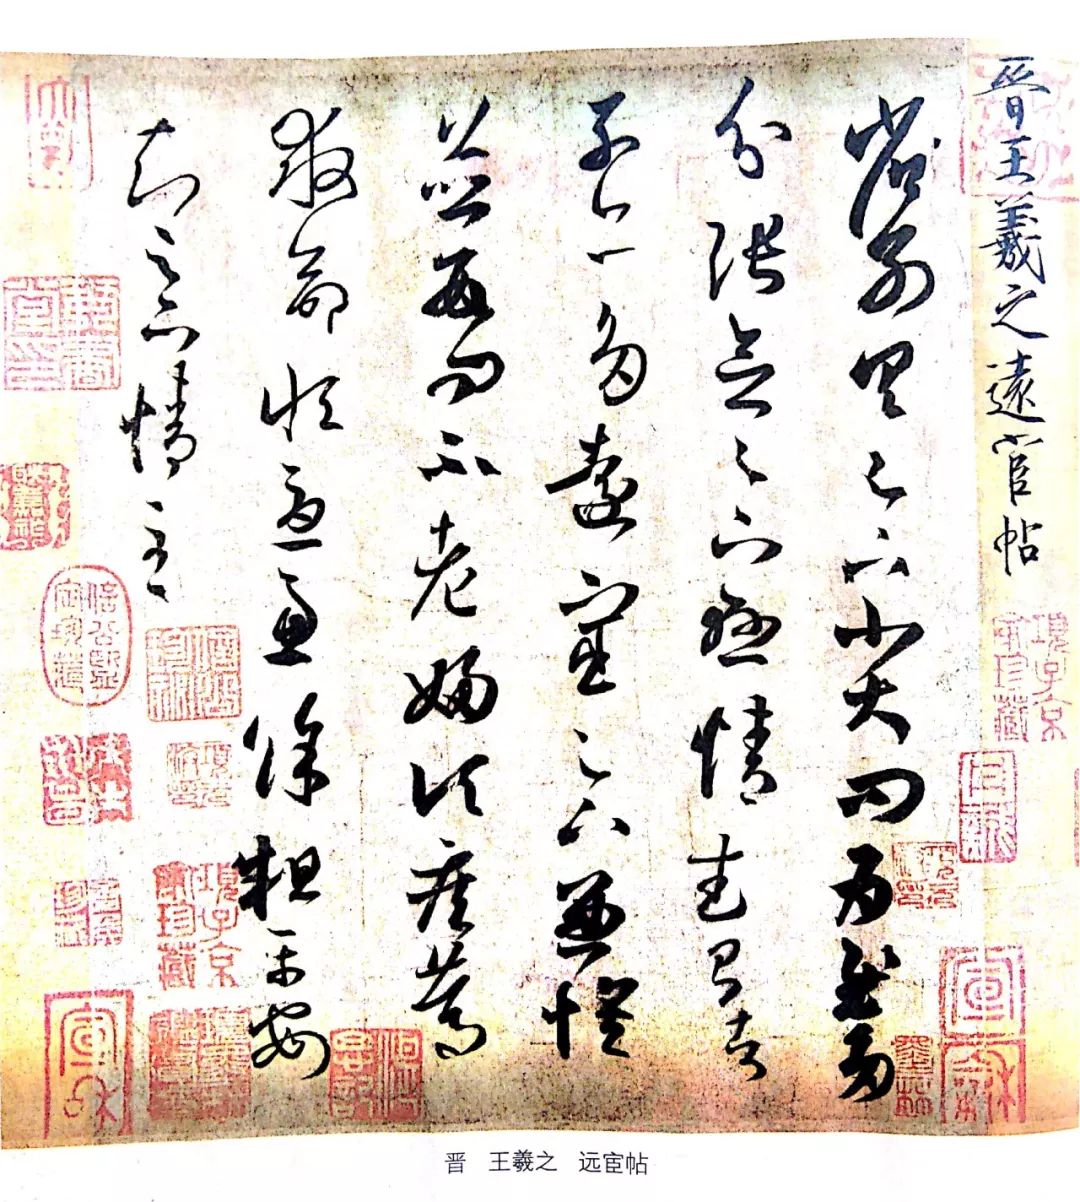 晋王羲之遠宦帖
省別具足下小大問為慰多
分張念足下懸情武昌諸
子亦多遠宦足下兼懷
並數問不老婦頃疾篤
救命恒憂慮餘粗平安
知足下情至
項子京家珍藏
墨林
項子京家珍藏
晋 王羲之 远宦帖